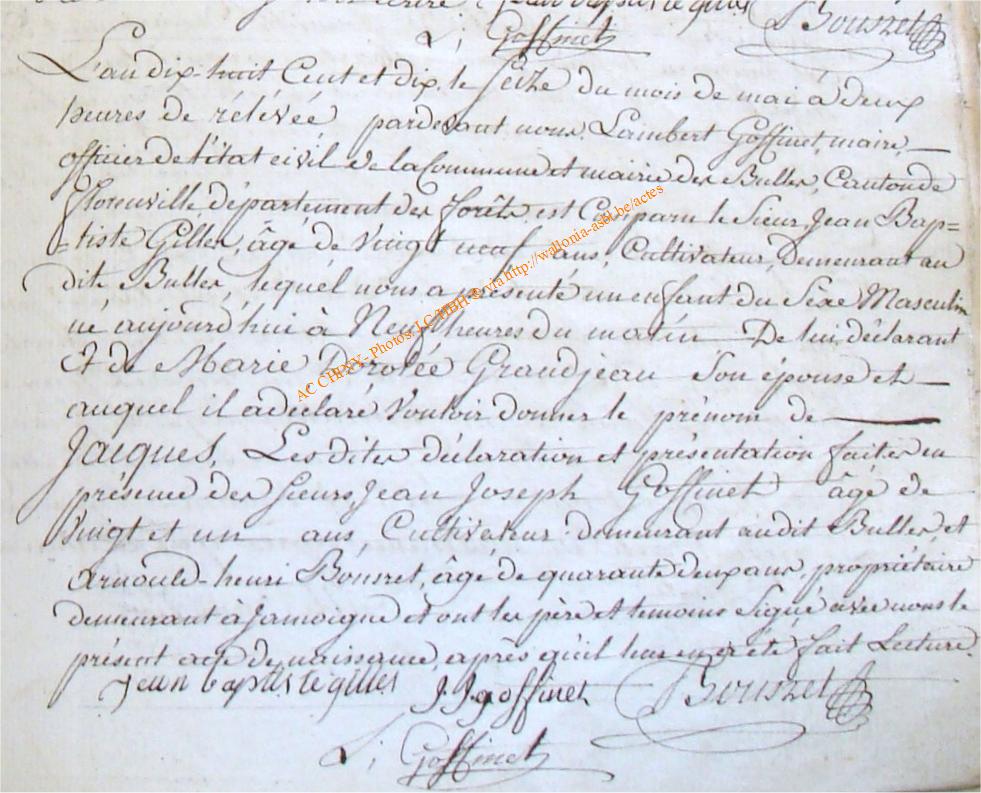 jean baptiste gilles Bousret
L; Goffinet
L'an dix-huit Cent et dix, le Seize du mois de mai à deux
heures de rélévée pardevant nous Lambert Goffinet, maire,
officier de l'état civil de la Commune et mairie des Bulles, Canton de
Florenville département des forêts, est Comparu le Sieur Jean Bap-
-tiste Gilles, âgé de Vingt neuf ans, Cultivateur, Demeurant au
dits Bulles, lequel nous a présenté un enfant du Sexe Masculin
né aujourd'hui à Neuf heures du matin De lui, déclarant
et de Marie Dorotée Grandjean Son épouse et
auquel il a déclaré Vouloir donner le prénom de
Jacques. Les dites déclaration et présentation faites en
présence des Sieurs Jean Joseph Goffinet âgé de
Vingt et un ans, Cultivateur demeurant audit Bulles, et
Arnould-henri Bousret, âgé de quarante deux ans, propriétaire
demeurant à Jamoigne et ont les père et temoins Signé avec nous le
présent acte de naissance, après qu'il leur en a été fait Lecture.
jean baptiste gilles J.J. goffinet Bousret
L; Goffinet
AC CHINY - Photos: J.C. HBH © via http://wallonia-asbl.be/actes